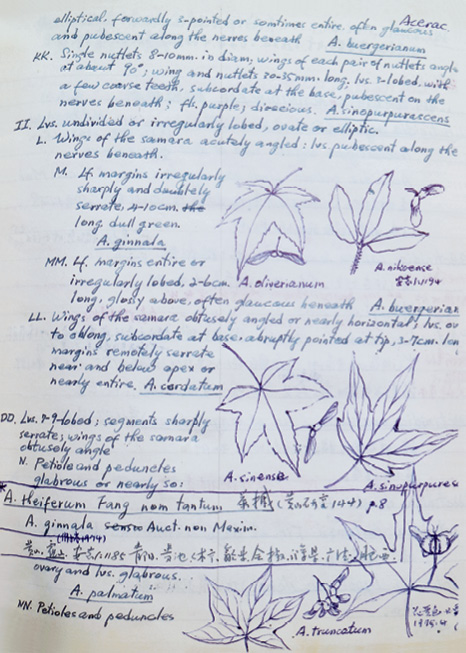 Acerac.
elliptical, forwardly 3-pointed or somtimes entire, often glaucous
and pubescent along the nerves beneath A. buergerianum
KK. Single nutlets 8-10mm. in diam, wings of each pair of nutlets angle
at about 90°; wing and nutlets 30-35mm. long, lvs. 3-lobed, with
a few coarse teeth, subcordate at the base, pubescent on the
nerves beneath; fls. purple; dioecious. A. sinopurpurascens
II. Lvs. undivided or irregularly lobed, ovate or elliptic.
L. Wings of the samara acutely angled: lvs. pubescent along the
nerves beneath.
M. Lf. margins irregularly
sharply and doubtely
serrate, 4-10cm. the
long dull green.
A. ginnala
MM. Lf. margins entire or
irregularly lobed, 2-6cm.
long, glossy above, often glaucous beneath A. buergerian
A. oliverianum
A. nikoense
LL. Wings of the samara obtusely angled or nearly horizontal; lvs. ov
to oblong, subcordate at base, abruptly pointed at tip, 3-7cm. len
margins remotely serrate
near and below apex or
nearly entire. A. cordatum
DD. Lvs. 7-9-lobed; segments sharply
serrate; wings of the samara
obtusely angle
N. Petiole and peduncles
glabrous or nearly so:
A. sinense
A. sinopurpures
A. Heiferum Fang nom tantum 144) p8
A. ginnala senso Auct. non Maxim.
ovary and lvs. glabrous.
A. palmatum
NN. Petioles and peduncles
A. truncatum